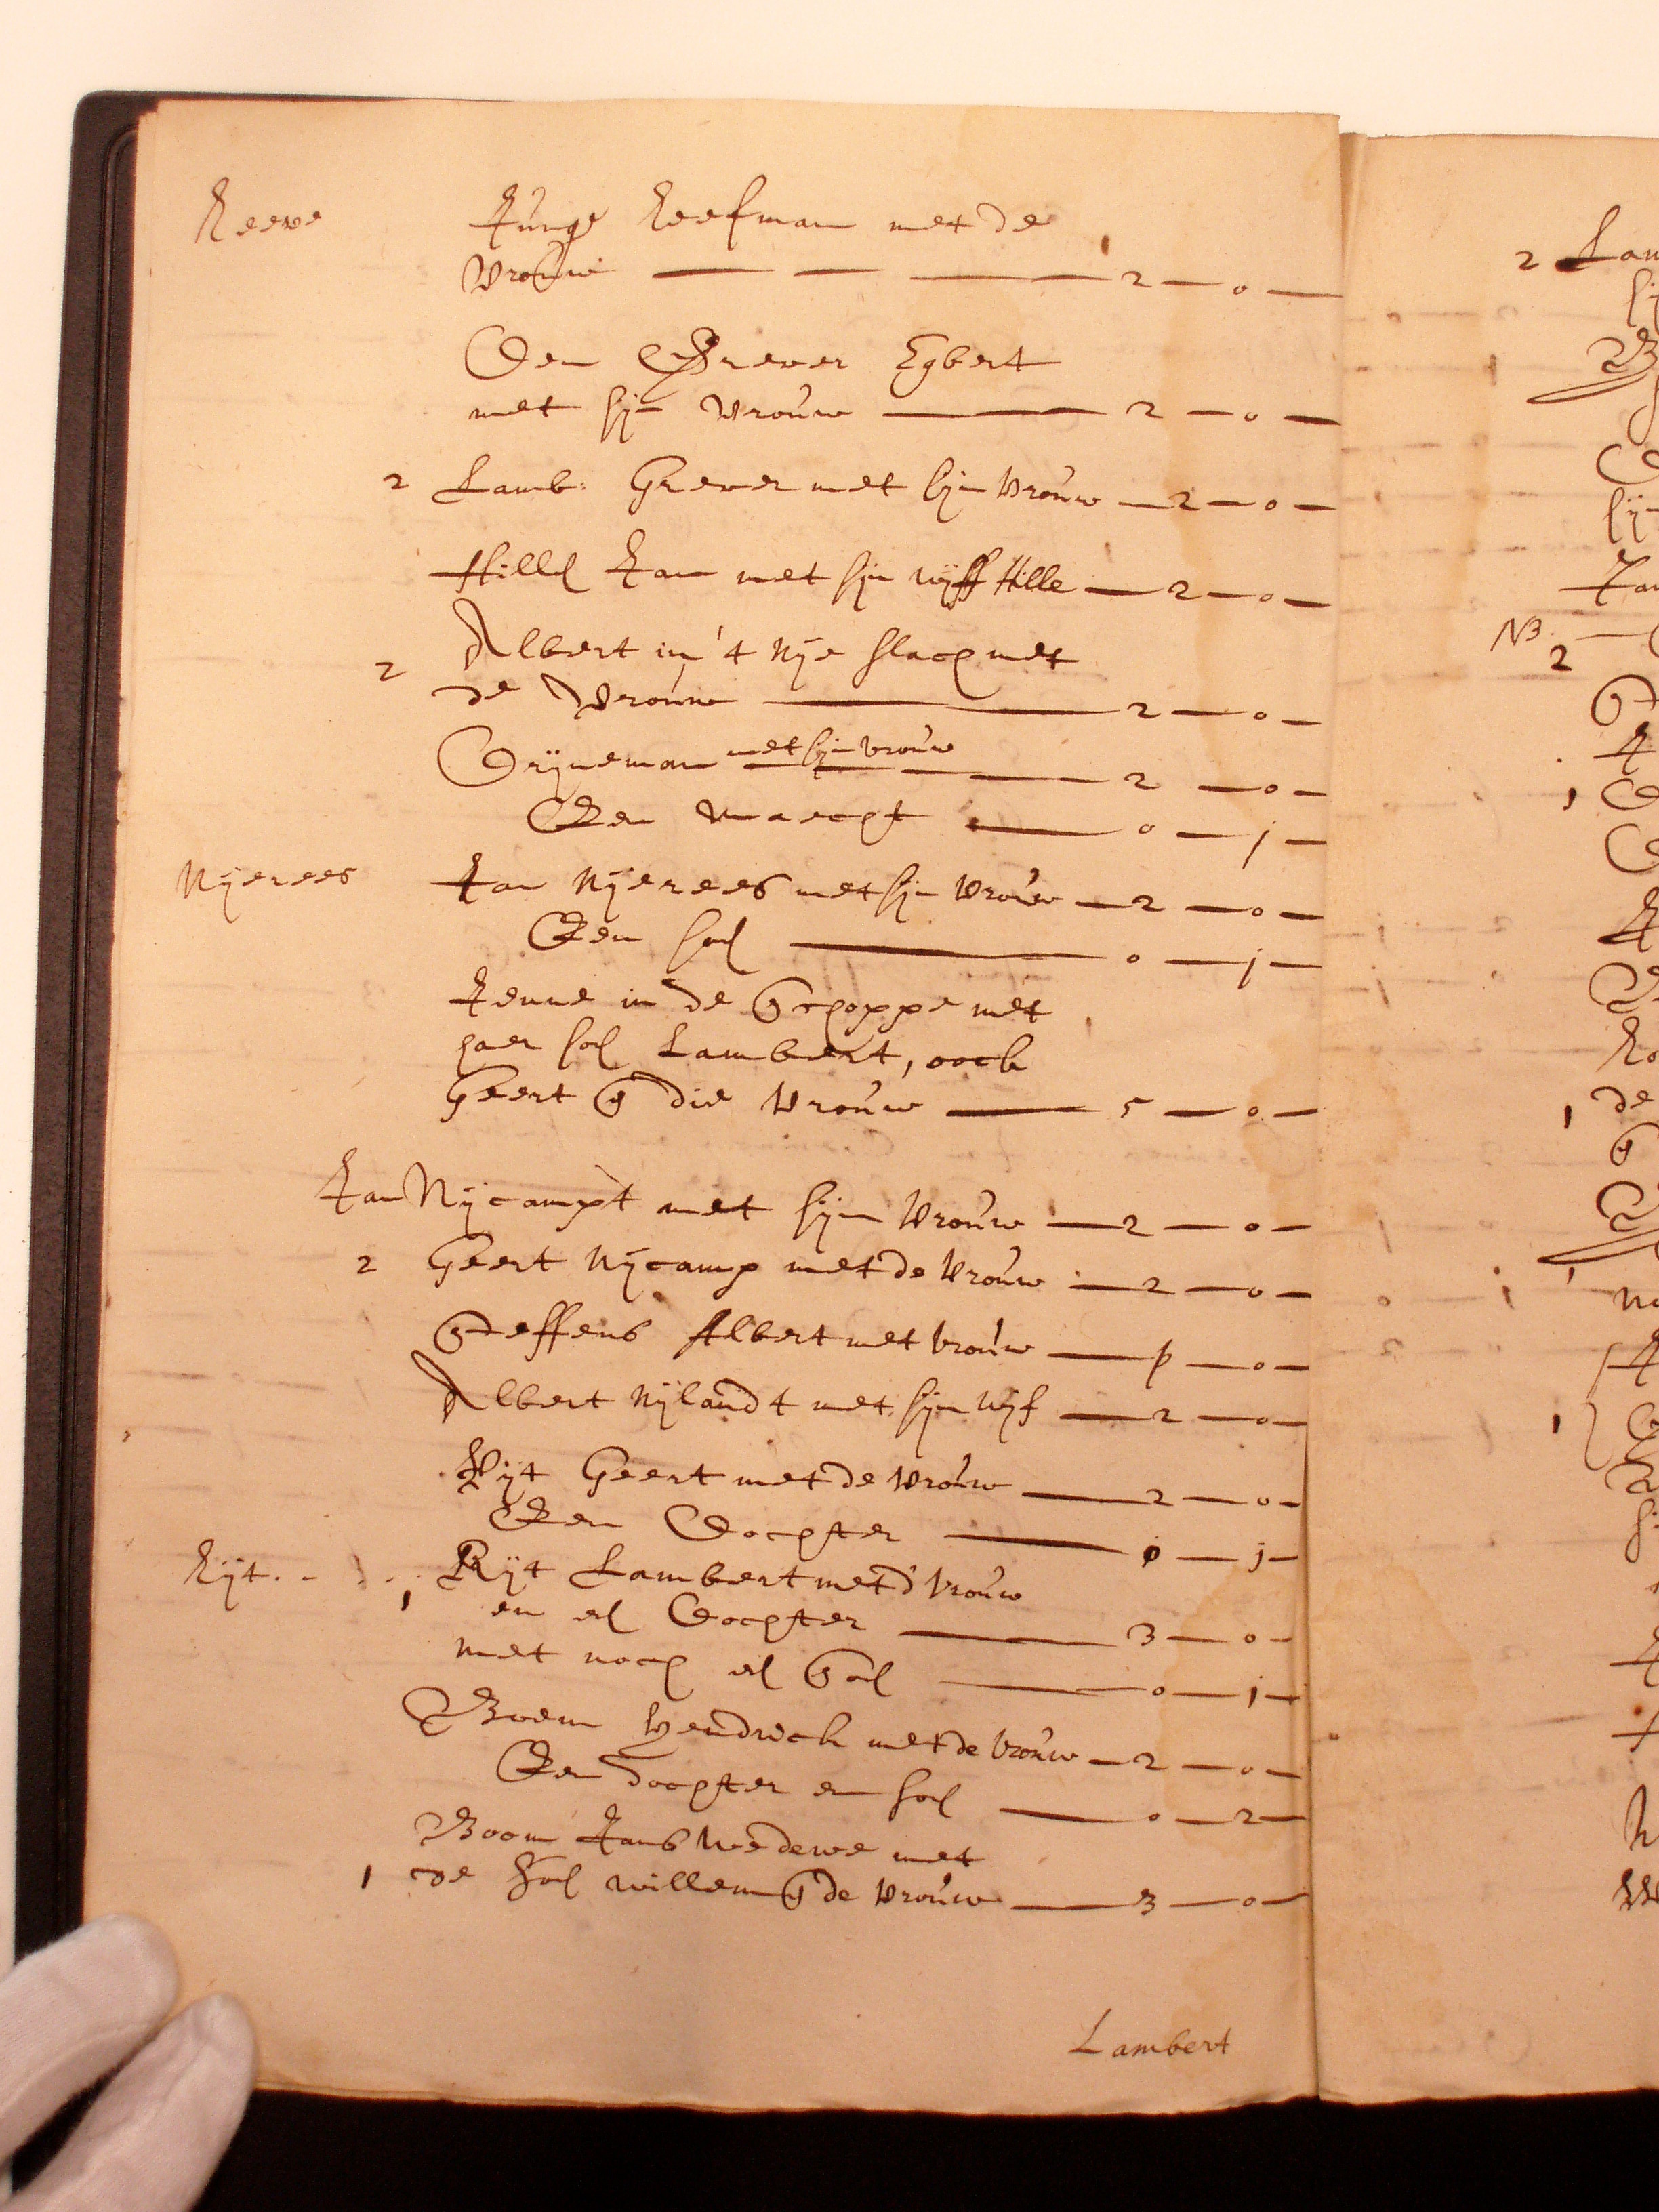 Reeve Junge Reefman met de
Vrouw — — — 2 — 0 —
Den Grever Egbert
met sijn Vrouw — 2 — 0 —
2 Lamb: Grever met sijn Vrouw — 2 — 0 —
Hille Jan met sijn wijff Hille — 2 — 0 —
2 Albert in't Nije slach met
de Vrouw — 2 — 0 —
Trijneman met sijn vrouw — 2 — 0 —
Een maecht — 0 — j —
Nijerees Jan Nijerees met sijn Vrouw — 2 — 0 —
Een soen — 0 — j —
Jenne in de Schoppe met
haer soen Lambert, oock
Geert & die Vrouw — 5 — 0 —
Jan Nijcampt met sijn Vrouw — 2 — 0 —
2 Geert Nijcamp met de Vrouw — 2 — 0 —
Steffens Albert met vrouw — p — 0 —
Albert Nijlandt met sijn Wijf — 2 — 0 —
Rijt Geert met de Vrouw — 2 — 0 —
Een Dochter — 0 — j —
Rijt. - Rijt Lambert met d' vrouw
1 en een Dochter — 3 — 0 —
met noch een Soen — 0 — 1 —
Boem Hendrick met de vrouw — 2 — 0 —
Een dochter en soen — 0 — 2 —
Boom Jans Wedewe met
1 de soen willem & de Vrouw — 3 — 0 —
Lambert
2 Lam
NB.
2
Jan
de
1